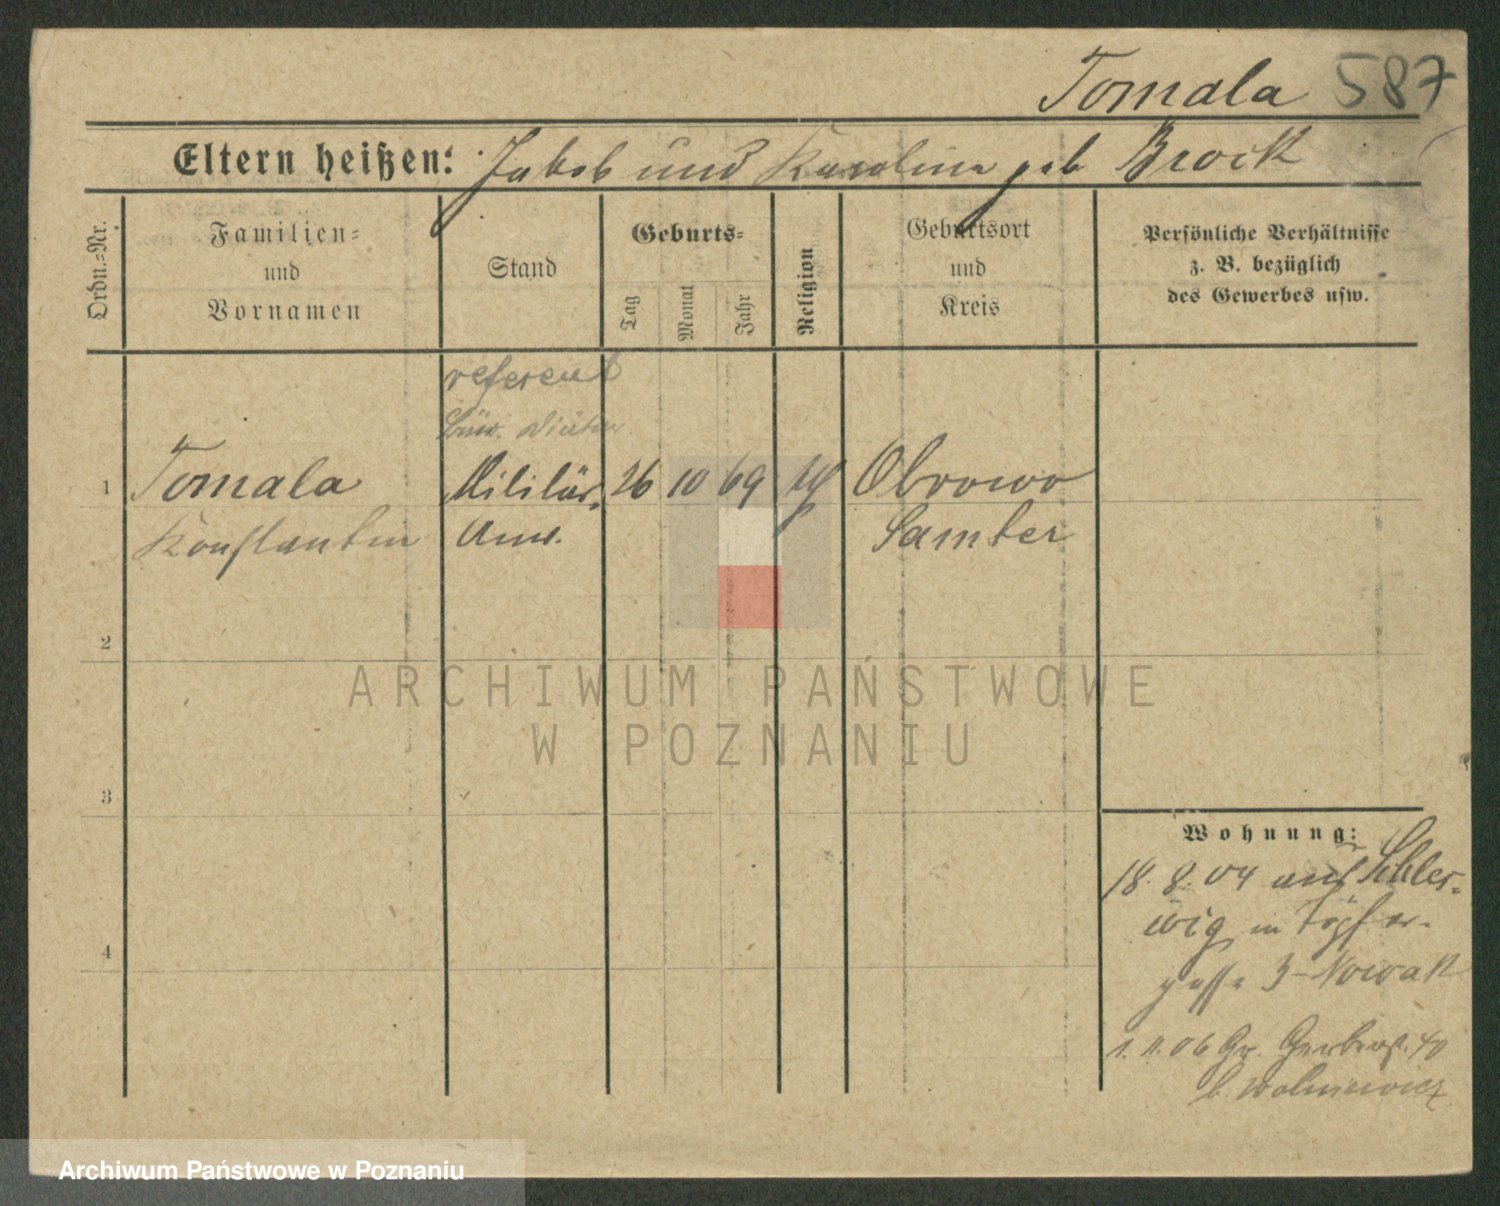 Tomala 587
Eltern heißen: Jakob und Karolina geb Brock
Ordn.-Nr.
Familien-
und
Vornamen
Stand
Geburts-
Tag
Monat
Jahr
Religion
Geburtsort
und
Kreis
Persönliche Verhältnisse
z. B. bezüglich
des Gewerbes usw.
referent
Büro. Diätar
1 Tomala Militär 26 10 69 Obrowo
Konstantin Anw. Samter
2
3
4
ARCHIWUM PAŃSTWOWE
W POZNANIU
Wohnung:
18. 8. 04 aus Schles-
wig in Töpfer-
gasse 3 Nowak
1. 11. 06 Gr. Gerberst. 40
b.
Archiwum Państwowe w Poznaniu